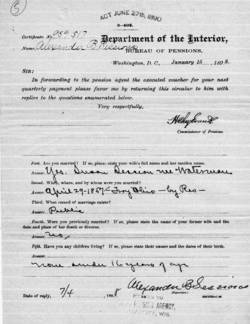 ACT JUNE 27th, 1890
3-402.
Certificate No.
Name, Alexander B. Sessions
Department of the Interior,
BUREAU OF PENSIONS,
Washington, D. C., January 15, 1898.
SIR:
In forwarding to the pension agent the executed voucher for your next
quarterly payment please favor me by returning this circular to him with
replies to the questions enumerated below.
Very respectfully,
Commissioner of Pensions.
First. Are you married? If so, please state your wife's full name and her maiden name.
Yes. Susan Session nee Waterman
Second. When, where, and by whom were you married?
April 29-1857- Troy Ohio - by Rev-
Third. What record of marriage exists?
Public
Fourth. Were you previously married? If so, please state the name of your former wife and the
date and place of her death or divorce.
No
Fifth. Have you any children living? If so, please state their names and the dates of their birth.
None under 16 years of age
Alexander B. Sessions
Date of reply, 7/4 , 1898
AGENCY,